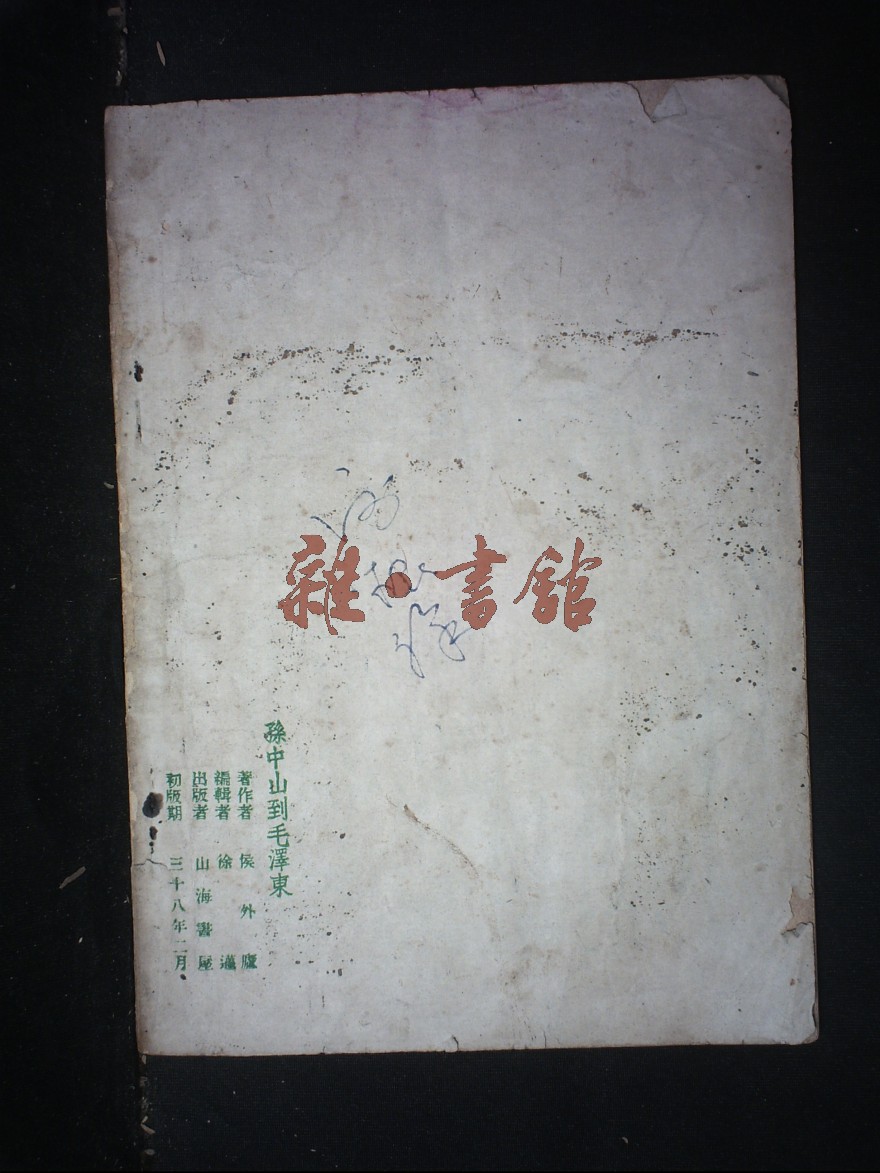 雜·書館
孫中山到毛澤東
著作者 侯外廬
編輯者 徐邁
出版者 山海書屋
初版期 三十八年二月